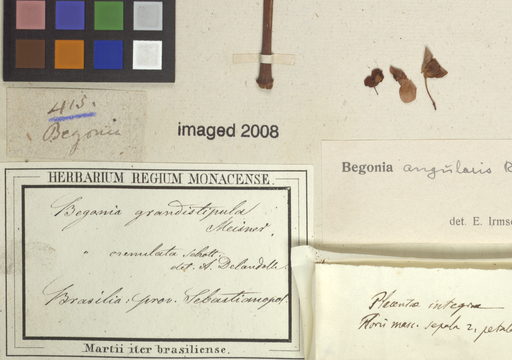 415.
Begonia
imaged 2008
Begonia angularis R
det. E. Irmsc
HERBARIUM REGIUM MONACENSE.
Begonia grandistipula
Meisner.
" crenulata Schott.
det. A. Decandolle.
Brasilia: prov. Sebastianopol.
Martii iter brasiliense.
Placenta integra
Flores masc. sepala 2, petala